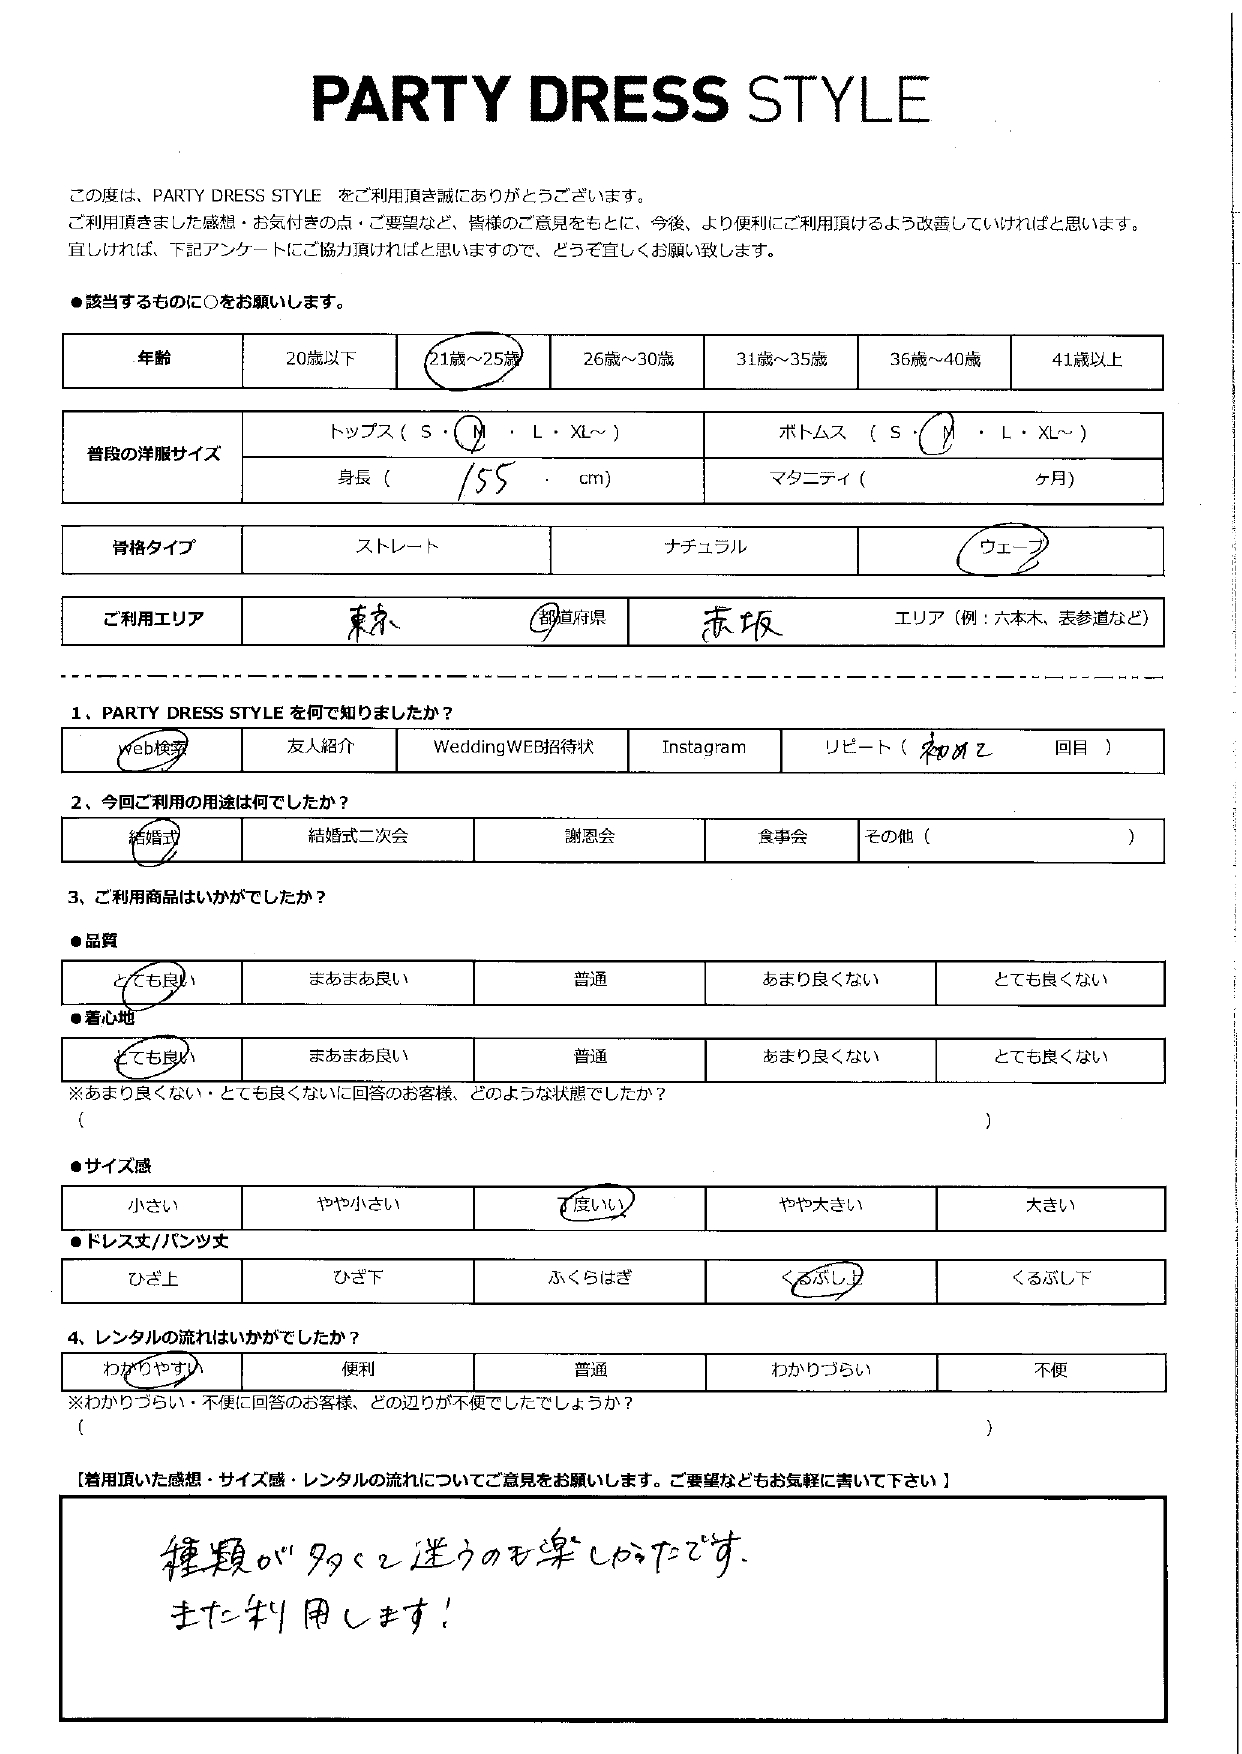 PARTY DRESS STYLE
この度は、PARTY DRESS STYLE をご利用頂き誠にありがとうございます。
ご利用頂きました感想・お気付きの点・ご要望など、皆様のご意見をもとに、今後、より便利にご利用頂けるよう改善していければと思います。
宜しければ、下記アンケートにご協力頂ければと思いますので、どうぞ宜しくお願い致します。
●該当するものに○をお願いします。
年齢 20歳以下 21歳～25歳 26歳～30歳 31歳～35歳 36歳～40歳 41歳以上
普段の洋服サイズ トップス ( S ・ M ・ L ・ XL～ ) ボトムス ( S ・ M ・ L ・ XL～ )
身長 ( 155 . cm) マタニティ ( ヶ月)
骨格タイプ ストレート ナチュラル ウェーブ
ご利用エリア 東京 都道府県 赤坂 エリア（例：六本木、表参道など）
1、PARTY DRESS STYLE を何で知りましたか？
Web検索 友人紹介 WeddingWEB招待状 Instagram リピート（ 初めて 回目 ）
2、今回ご利用の用途は何でしたか？
結婚式 結婚式二次会 謝恩会 食事会 その他（ ）
3、ご利用商品はいかがでしたか？
●品質
とても良い まあまあ良い 普通 あまり良くない とても良くない
●着心地
とても良い まあまあ良い 普通 あまり良くない とても良くない
※あまり良くない・とても良くないに回答のお客様、どのような状態でしたか？
( )
●サイズ感
小さい やや小さい 丁度いい やや大きい 大きい
●ドレス丈/パンツ丈
ひざ上 ひざ下 ふくらはぎ くるぶし上 くるぶし下
4、レンタルの流れはいかがでしたか？
わかりやすい 便利 普通 わかりづらい 不便
※わかりづらい・不便に回答のお客様、どの辺りが不便でしたでしょうか？
( )
【着用頂いた感想・サイズ感・レンタルの流れについてご意見をお願いします。ご要望などもお気軽に書いて下さい 】
種類が多くて迷うのも楽しかったです.
また利用します!